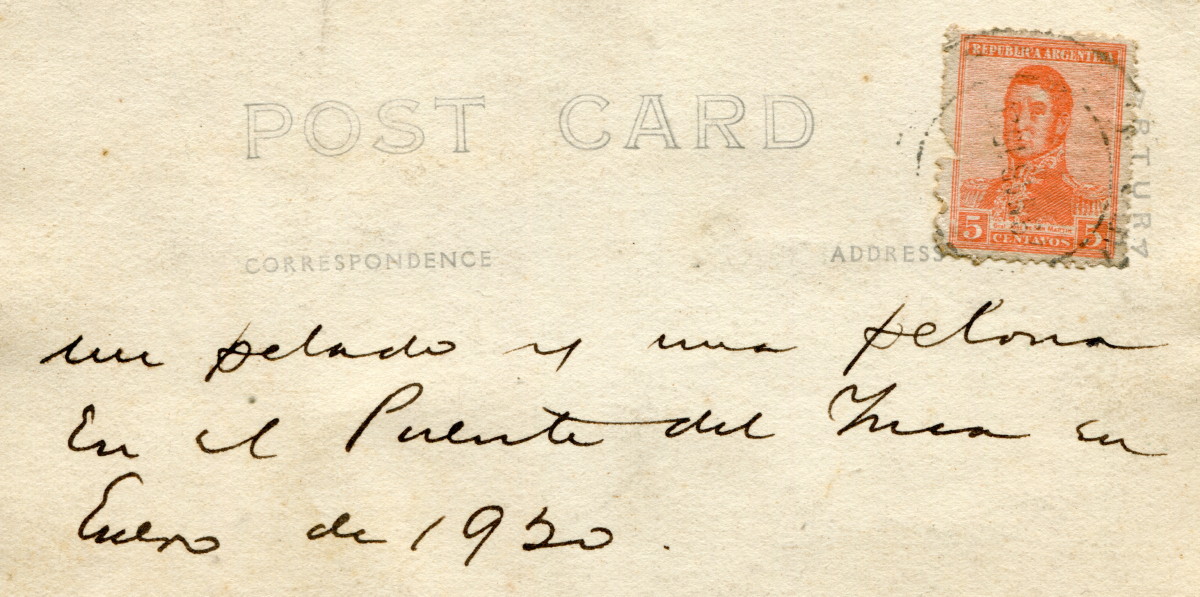 POST CARD
REPUBLICA ARGENTINA
5 CENTAVOS 5
CORRESPONDENCE ADDRESS
un pelado y una pelona
En el Puente del Inca en
Enero de 1920.